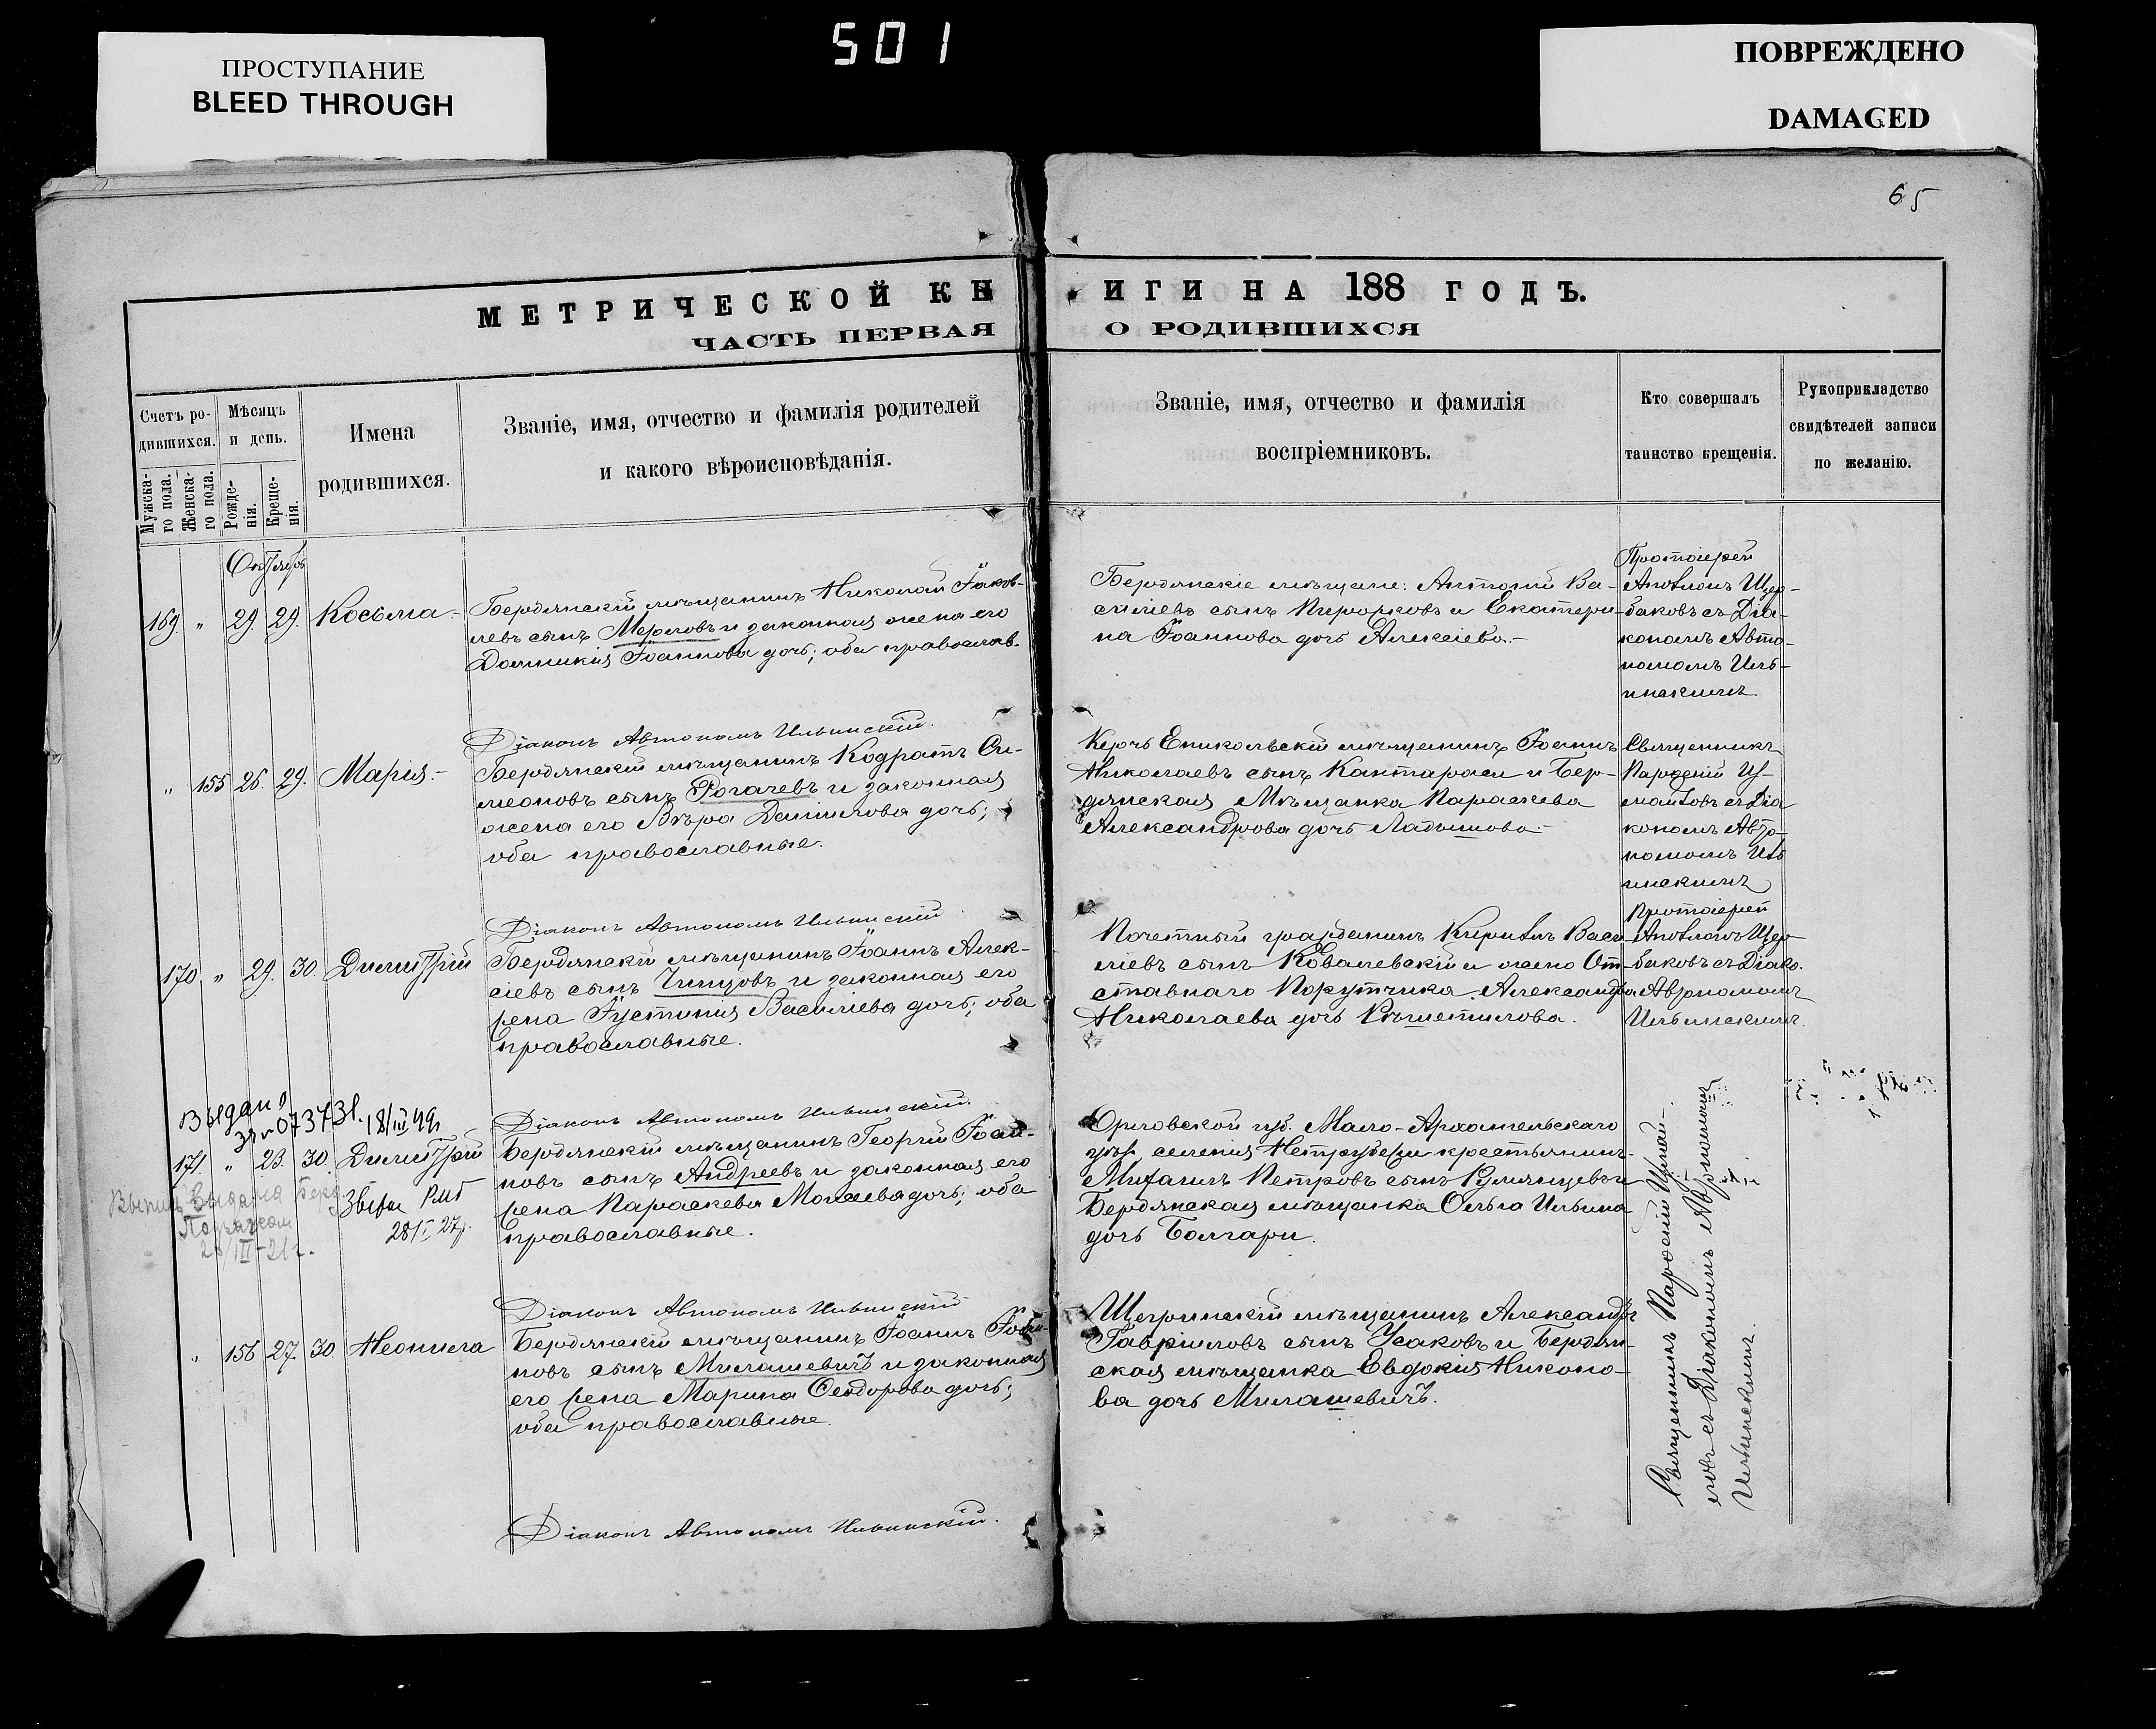 501
ПРОСТУПАНИЕ
BLEED THROUGH
ПОВРЕЖДЕНО
DAMAGED
65
МЕТРИЧЕСКОЙ КНИГИ НА 188 ГОДЪ.
ЧАСТЬ ПЕРВАЯ О РОДИВШИХСЯ
Счетъ ро-
дившихся.
Мужска-
го пола.
Женска-
го пола.
Мѣсяцъ
и день.
Рожде-
нія.
Креще-
нія.
Имена
родившихся.
Званіе, имя, отчество и фамилія родителей
и какого вѣроисповѣданія.
Званіе, имя, отчество и фамилія
воспріемниковъ.
Кто совершалъ
таинство крещенія.
Рукоприкладство
свидѣтелей записи
по желанію.
Октябрь
169. " 29. 29. Косьма
Бердянскій мѣщанинъ Николай Іаков-
левъ сынъ и законная жена его
Домникія Іоаннова дочь; оба православ.
Бердянскіе мѣщане: Антоній Ва-
силіевъ сынъ Пирожковъ и Екатери-
на Іоаннова дочь Алексіева.
Протоіерей
Аполлонъ Щер-
баковъ съ Діа-
кономъ Авто-
номомъ Иль-
инскимъ
Діаконъ Автономъ Ильинскій.
" 155 26. 29. Марія.
Бердянскій мѣщанинъ Кодратъ Си-
меоновъ сынъ Рогачевъ и законная
жена его Вѣра Даніилова дочь;
оба православные.
Керчь Еникольскій мѣщанинъ Іоаннъ
Николаевъ сынъ Кантаржи и Бер-
дянская Мѣщанка Параскева
Александрова дочь Ладышова
Священникъ
съ Діа
кономъ Авто-
номомъ Иль
инскимъ
Діаконъ Автономъ Ильинскій
170. " 29. 30. Димитрій
Бердянскій мѣщанинъ Іоаннъ Алек-
сіевъ сынъ и законная его
жена Іустинія Василіева дочь; оба
православные.
Почетный гражданинъ Кириллъ Васи-
ліевъ сынъ Ковалевскій и жена От-
ставнаго Порутчика Александра
Николаева дочь
Протоіерей
Аполлонъ Щер-
баковъ съ Діако.
Автономомъ
Ильинскимъ.
Выдано
073731. 18/III 49г
Діаконъ Автономъ Ильинскій.
171. " 23. 30. Димитрій
28/I 27г.
Бердянскій мѣщанинъ Георгій Іоан-
новъ сынъ Андреевъ и законная его
жена Параскева Моисеева дочь; оба
православные.
Орловской губ. Мало-Архангельскаго
селенія крестьянинъ
Михаилъ Петровъ сынъ Румянцевъ и
Бердянская мѣщанка Ольга Ильина
дочь Болгари.
Священникъ
съ Діакономъ Автономомъ
Ильинскимъ.
Діаконъ Автономъ Ильинскій
" 156 27. 30. Неонила
Бердянскій мѣщанинъ Іоаннъ
новъ сынъ Милашевичъ и законная
его жена Марина Феодорова дочь;
оба православные.
мѣщанинъ Александръ
Гавріиловъ сынъ Усаковъ и Бердян-
ская мѣщанка Евдокія Никоно-
ва дочь Милашевичъ.
Діаконъ Автономъ Ильинскій.